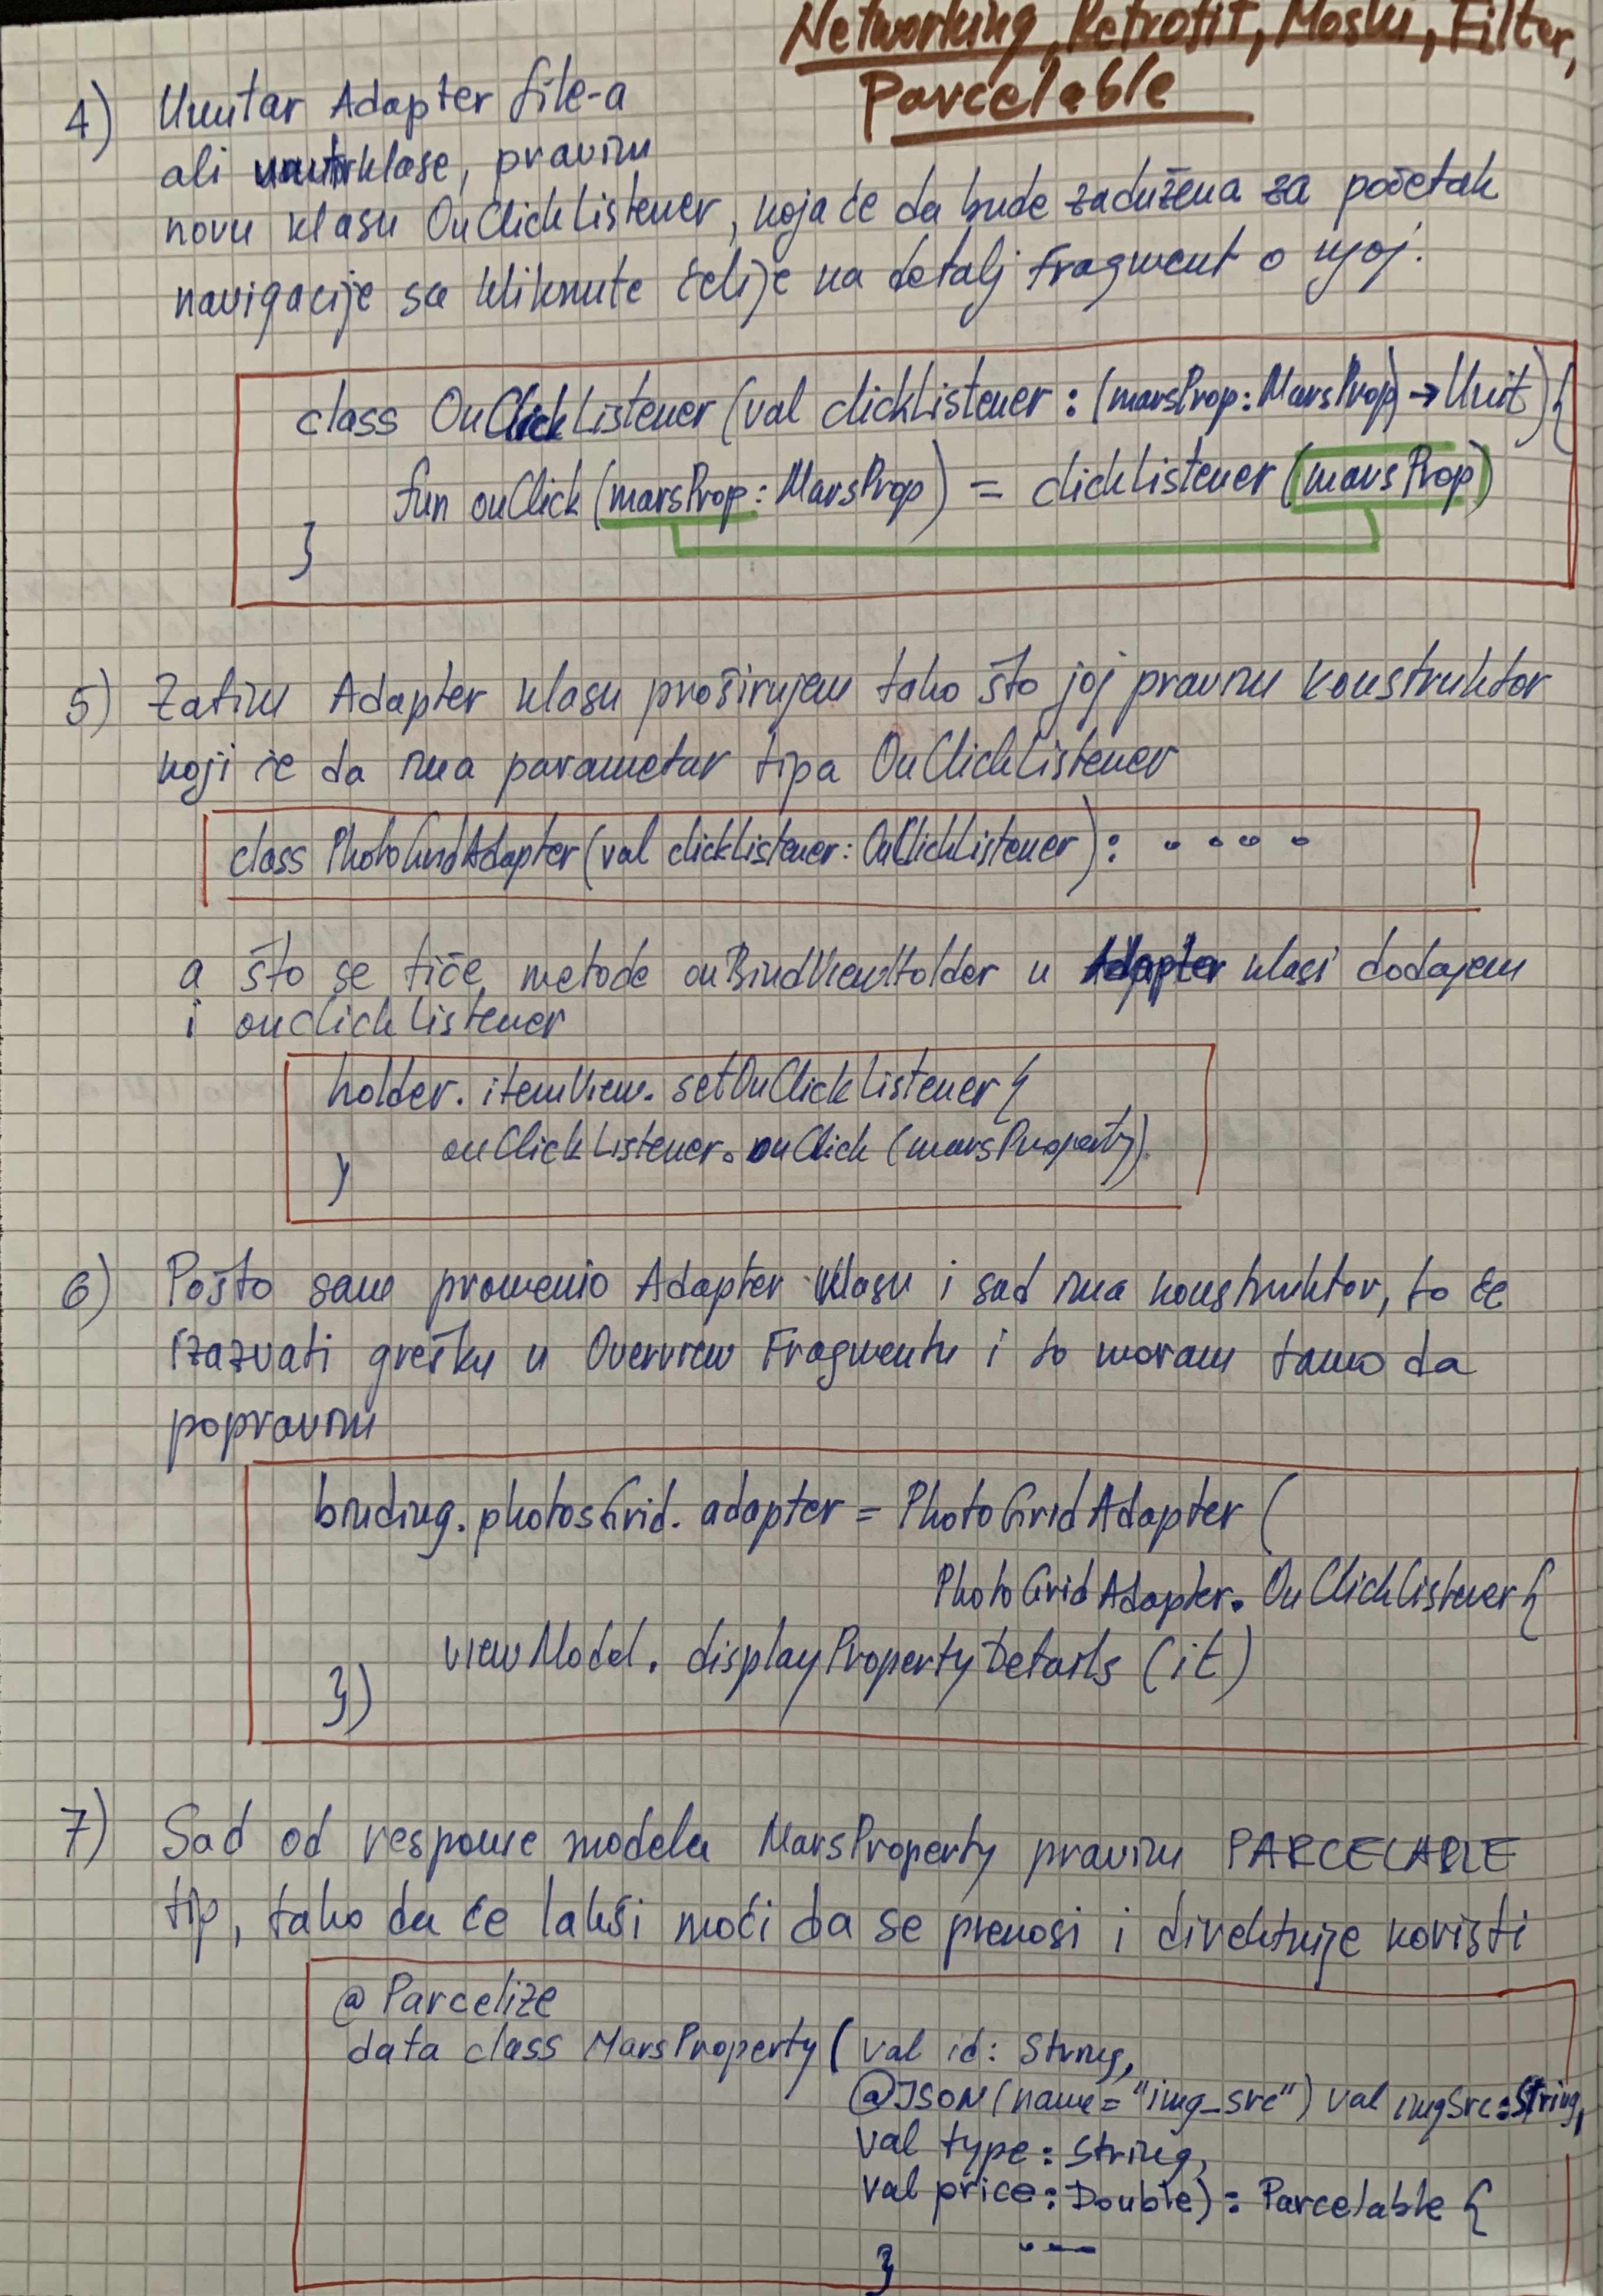 Networking, Retrofit, Moshi, Filter,
Parcelable
4) Unutar Adapter file-a
ali unutr klase, pravim
novu klasu OnClickListener, koja će da bude zadužena za početak
navigacije sa kliknute ćelije na detalj fragment o njoj.
class OnClickListener (val clickListener : (marsProp: MarsProp) → Unit) {
fun onClick (marsProp : MarsProp) = clickListener (marsProp)
}
5) Zatim Adapter klasu proširujem tako što joj pravim konstruktor
koji će da ima parametar tipa OnClickListener
class PhotoGridAdapter (val clickListener: OnClickListener) : . . . .
a što se tiče metode onBindViewHolder u Adapter klasi dodajem
i onClickListener
holder. itemView. setOnClickListener {
onClickListener. onClick (marsProperty)
}
6) Pošto sam promenio Adapter klasu i sad ima konstruktor, to će
izazvati grešku u Overview Fragmentu i to moram tamo da
popravim
binding. photosGrid. adapter = PhotoGridAdapter (
PhotoGridAdapter. OnClickListener {
viewModel. displayPropertyDetails (it)
})
7) Sad od response modela MarsProperty pravim PARCELABLE
tip, tako da će lakši moći da se prenosi i direktnije koristi
@Parcelize
data class MarsProperty ( val id: String,
@JSON (name = "img_src") val imgSrc : String,
val type : String,
val price : Double) : Parcelable {
...
}